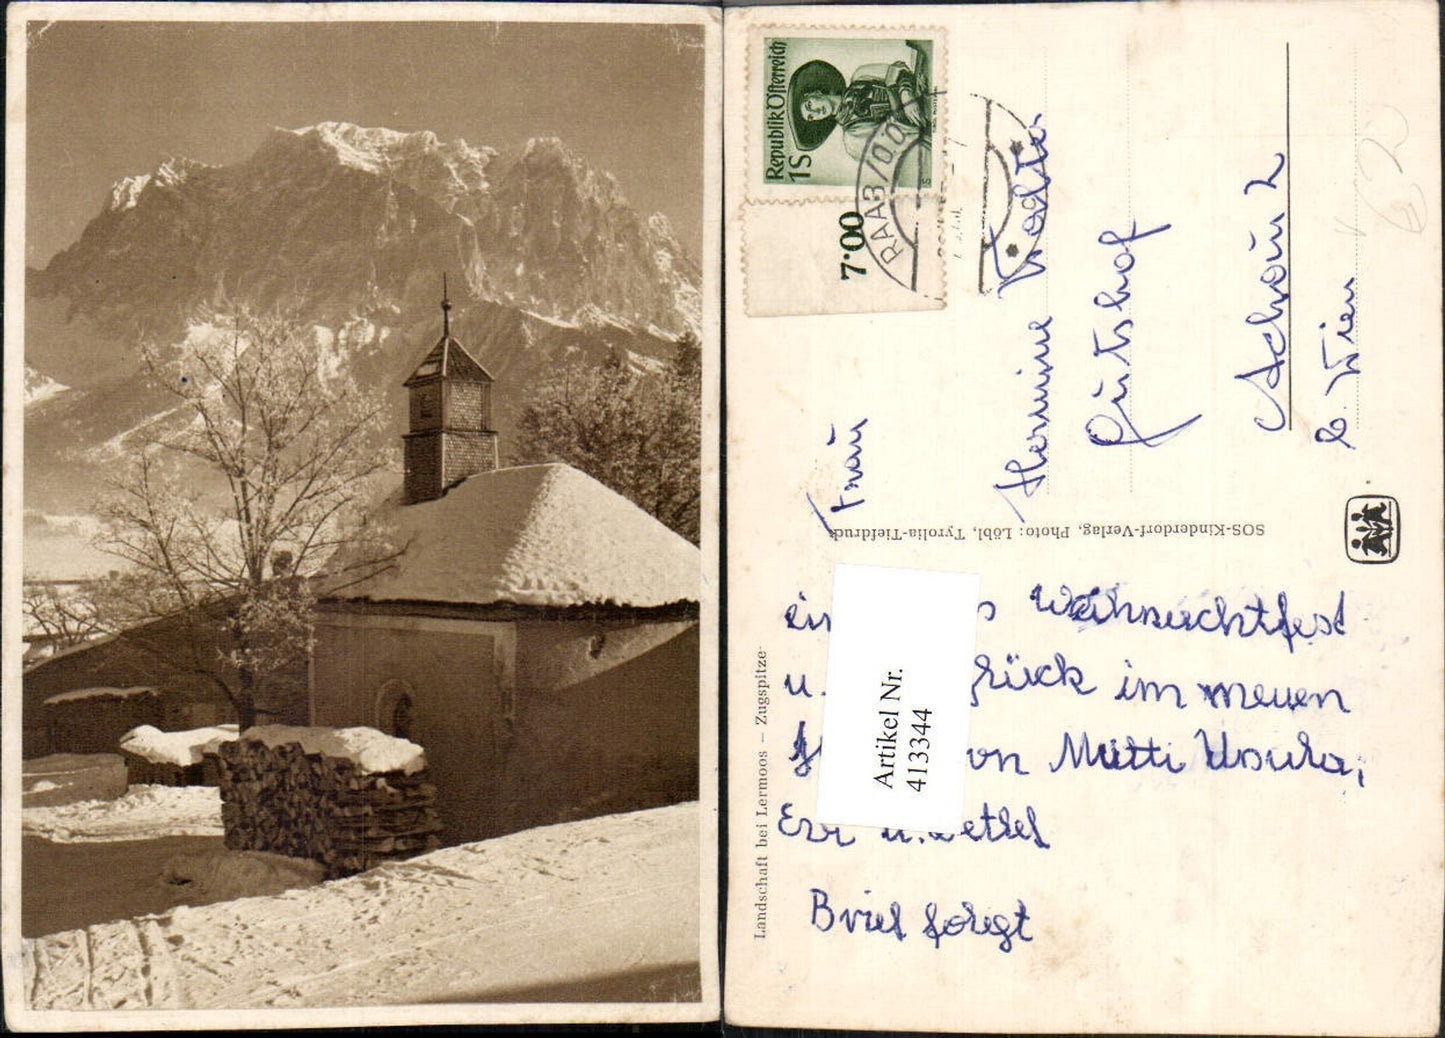 Republik Österreich
1S
7·00
RAAB
Frau
Hermine
Gutshof
Achau 2
b. Wien
SOS-Kinderdorf-Verlag, Photo: Löbl, Tyrolia-Tiefdruck
Landschaft bei Lermoos – Zugspitze
Artikel Nr.
413344
Weihnachtsfest
u. Glück im neuen
von Mutti Ursula,
Evi u.
Brief folgt